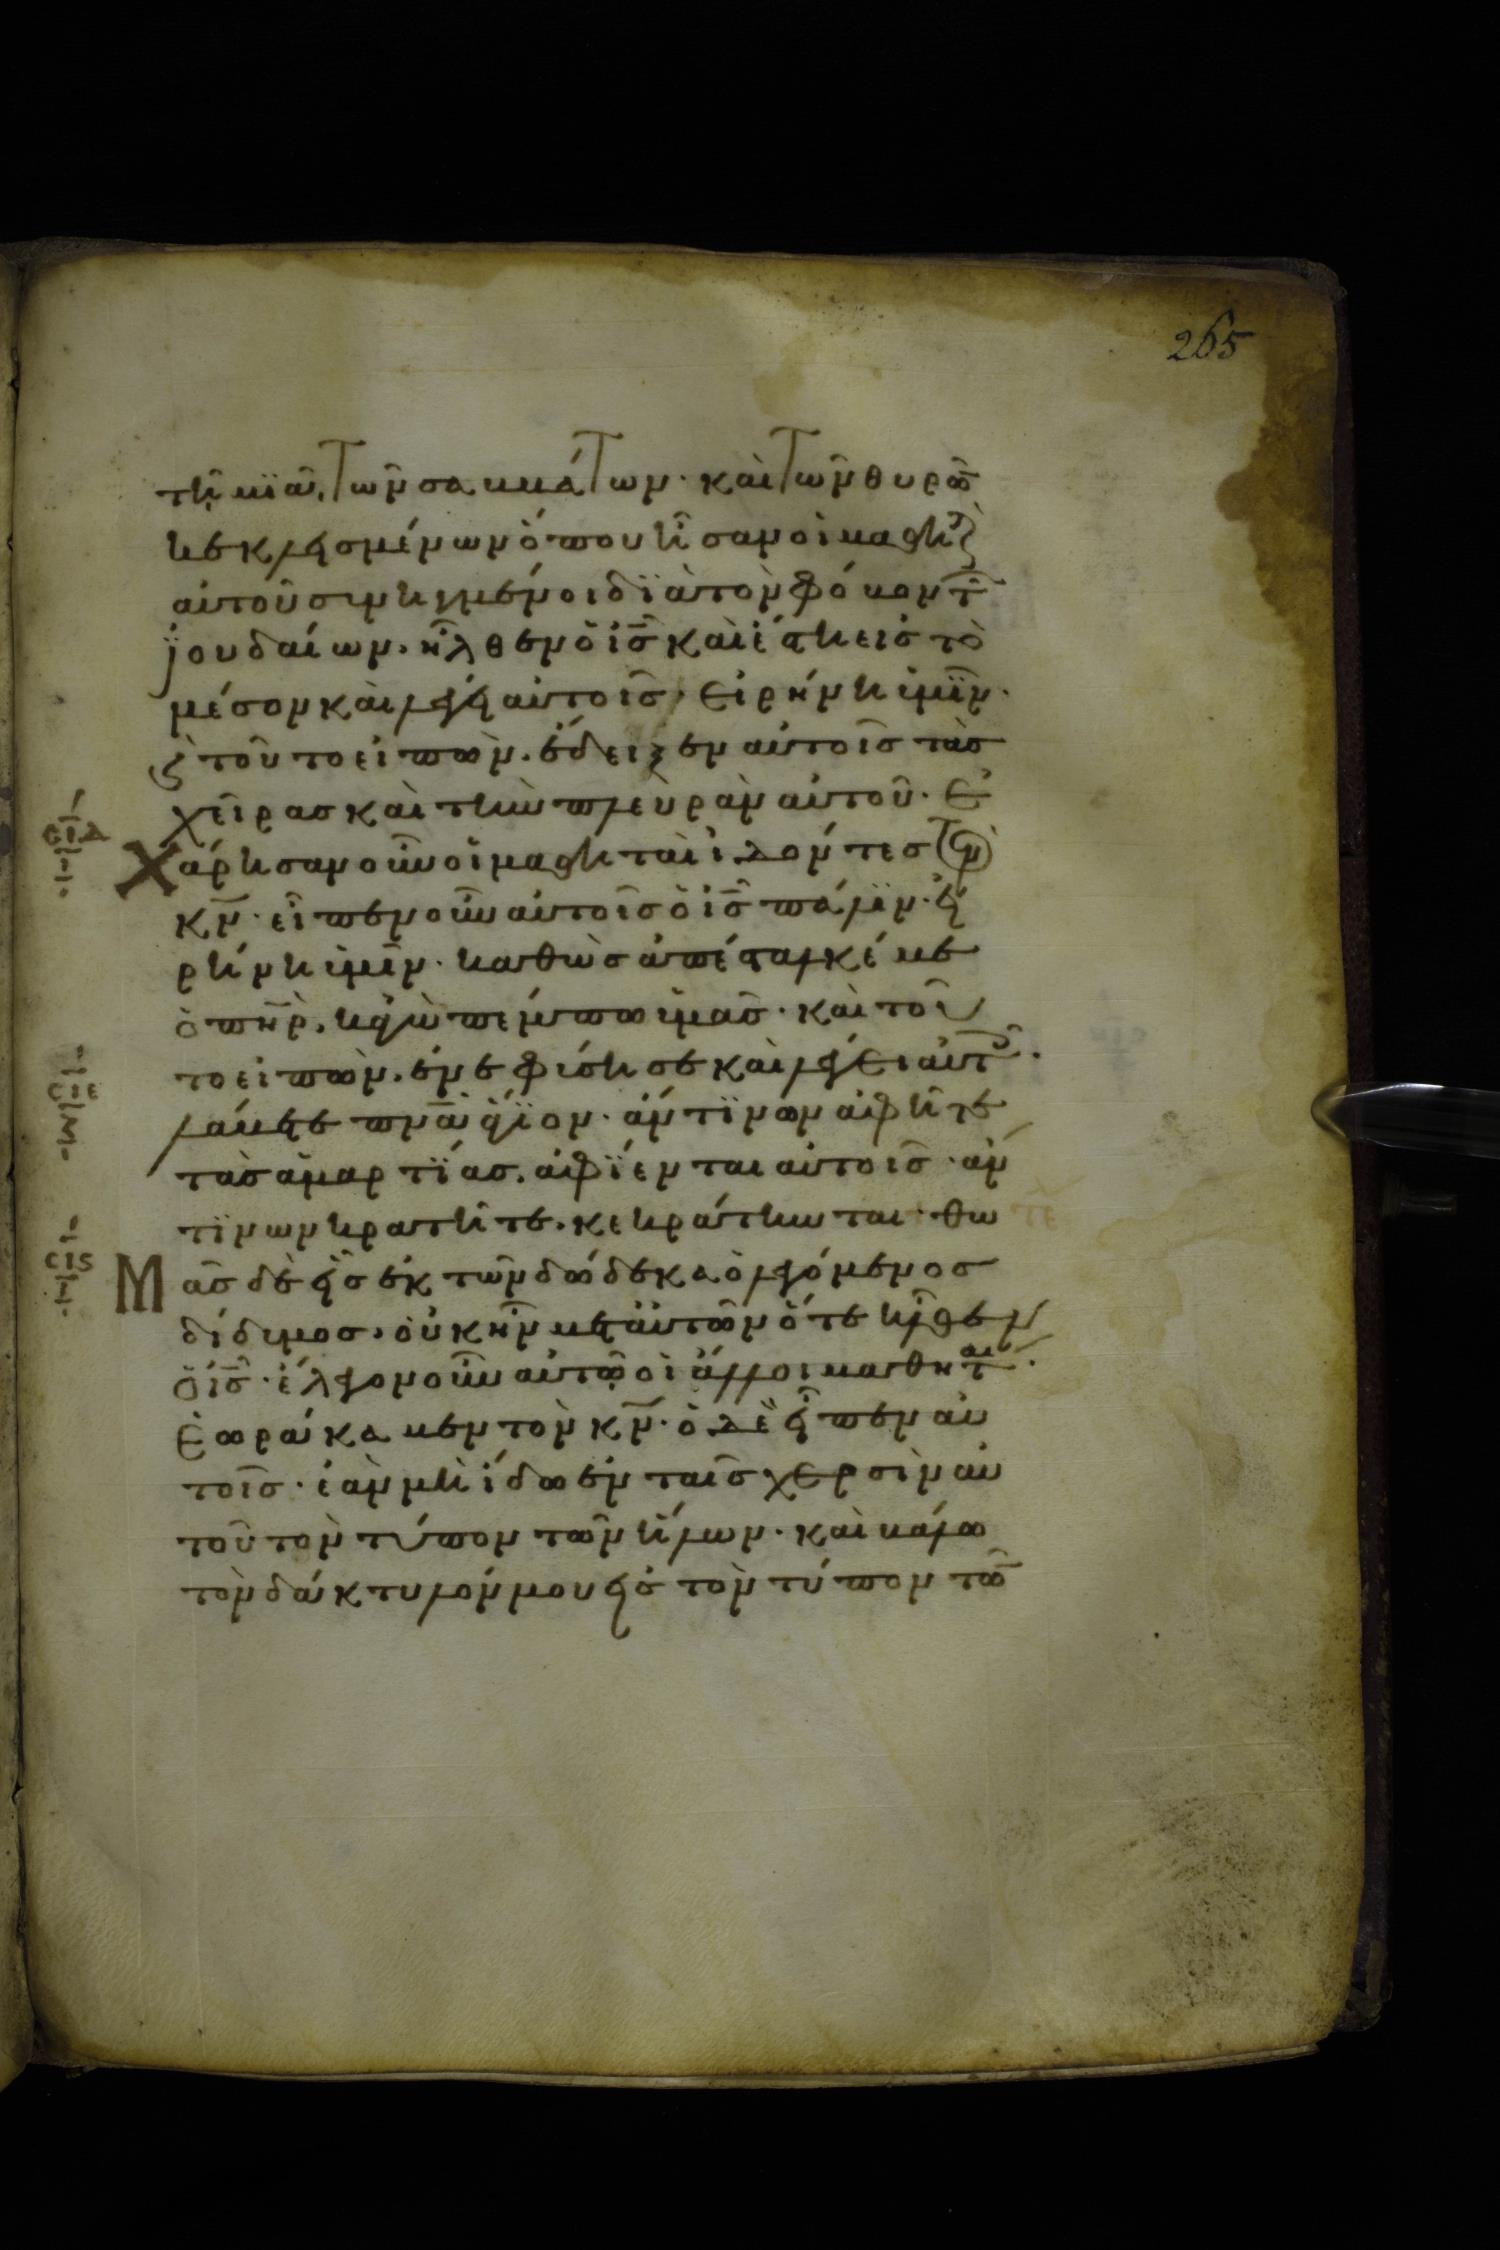 265
τῆ μϊᾶ, τῶν σαββάτων· καὶ τῶν θυρῶ̅
κεκλεισμένων ὅπου ἦσαν οἱ μαθητ(αὶ)
αὐτοῦ συνηγμένοι δϊὰ τὸν φόβον τ(ῶν)
ϊουδαίων. ἦλθεν ὁ ι̅σ̅ καὶ ἔστη εἰσ τὸ
μέσον καὶ λέγει αὐτοῖσ. εἰρήνη ὑμῖν·
(καὶ) τοῦτο εἰπὼν. ἔδειξεν αὐτοῖσ τὰσ
χεῖρασ καὶ τὴν πλευρὰν αὐτοῦ· ἐ
σ̅ι̅δ̅ ι
χάρησαν οὖν οἱ μαθηταὶ ἰδόντεσ τὸν
κ̅ν̅· εἶπεν οὖν αὐτοῖσ ὁ ι̅σ̅ πάλϊν· εἰ
ρήνη ὑμῖν· καθὼσ ἀπέσταλκέ με
ὁ π̅η̅ρ̅. κἀγὼ πέμπω ὑμᾶσ· καὶ τοῦ
σ̅ι̅ε̅ ζ
το εἰπὼν. ἐνεφύσησε καὶ λέγει αὐτ(οῖσ)·
λάβετε π̅ν̅α̅ ἅγϊον· ἄν τϊνων ἀφῆτε
τὰσ ἁμαρτΐασ. ἀφΐενται αὐτοῖσ· ἄν
τϊνων κρατῆτε. κεκράτηνται· θω
σ̅ι̅ς̅ ι
μᾶσ δὲ εἷσ ἐκ τῶν δώδεκα ὁ λεγόμενοσ
δίδυμοσ. οὐκ ἦν μετ᾽ αὐτῶν ὅτε ἦλθεν
ὁ ι̅σ̅· ἔλεγον οὖν αὐτῶ οἱ ἄλλοι μαθηταί·
ἑωράκαμεν τὸν κ̅ν̅· ὁ δὲ εἶπεν αὐ
τοῖσ· ἐὰν μὴ ἴδω ἐν ταῖσ χερσὶν αὐ
τοῦ τὸν τύπον τῶν ἥλων· καὶ βάλω
τὸν δάκτυλόν μου εἰσ τὸν τύπον τῶ̅